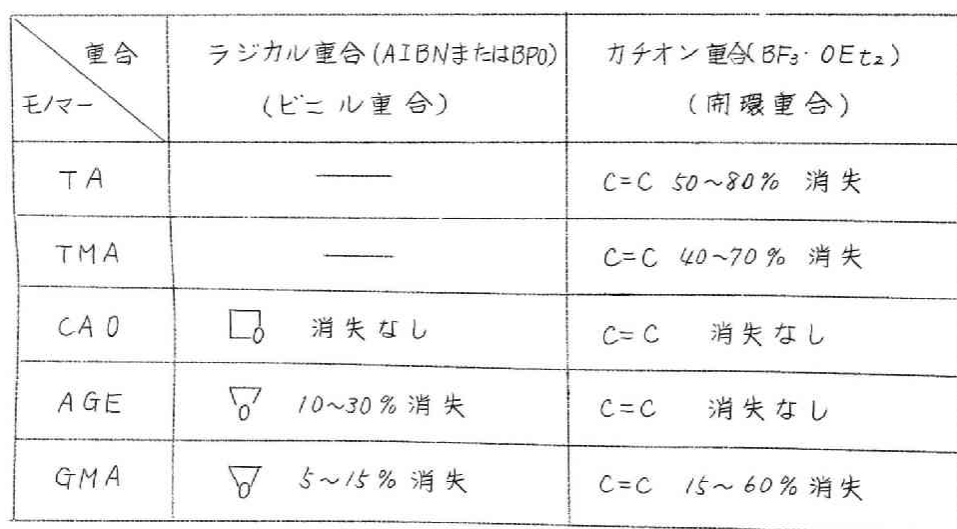 重合
モノマー
ラジカル重合(AIBNまたはBPO)
(ビニル重合)
カチオン重合(BF₃·OEt₂)
(開環重合)
TA
C=C 50~80% 消失
TMA
C=C 40~70% 消失
CAO
O 消失なし
C=C 消失なし
AGE
O 10~30% 消失
C=C 消失なし
GMA
O 5~15% 消失
C=C 15~60% 消失